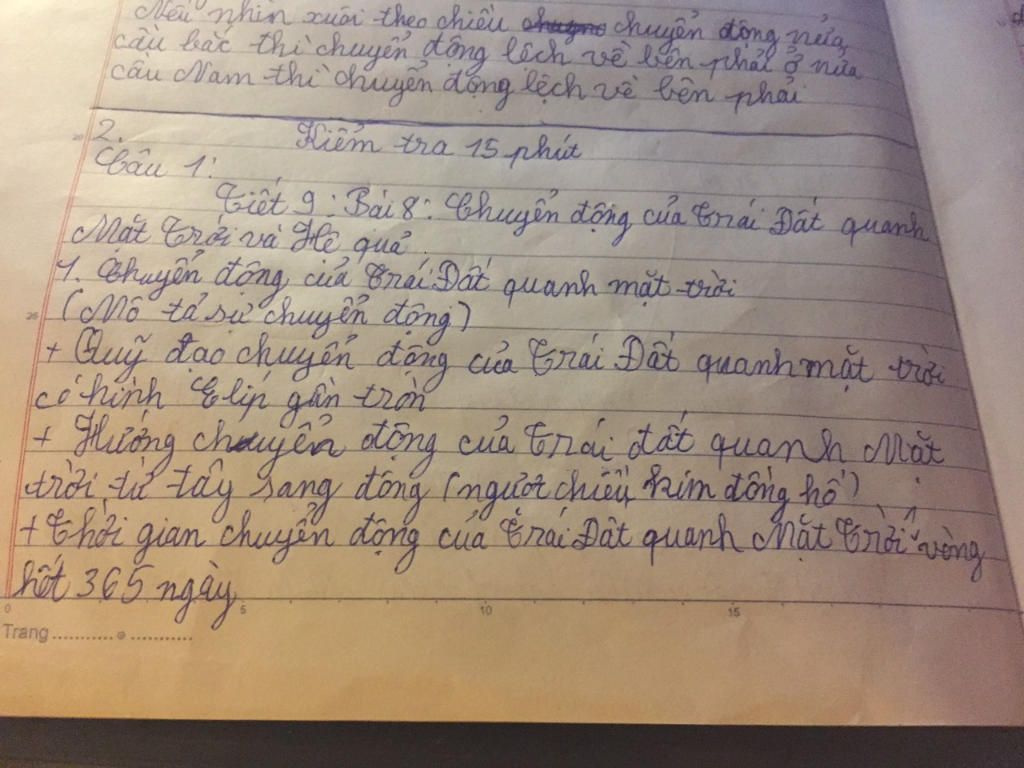 Nếu nhìn xuôi theo chiều chuyển động nửa
cầu bắc thì chuyển động lệch về bên phải ở nửa
cầu Nam thì chuyển động lệch về bên phải
20 2. Kiểm tra 15 phút
Câu 1:
Tiết 9: Bài 8: Chuyển động của Trái Đất quanh
Mặt Trời và Hệ quả
1. Chuyển động của Trái Đất quanh mặt trời
25 (Mô tả sự chuyển động)
+ Quỹ đạo chuyển động của Trái Đất quanh mặt trời
có hình Elip gần tròn
+ Hướng chuyển động của Trái đất quanh Mặt
trời từ tây sang đông (ngược chiều kim đồng hồ)
+ Thời gian chuyển động của Trái Đất quanh Mặt Trời 1 vòng
hết 365 ngày
0 5 10 15
Trang